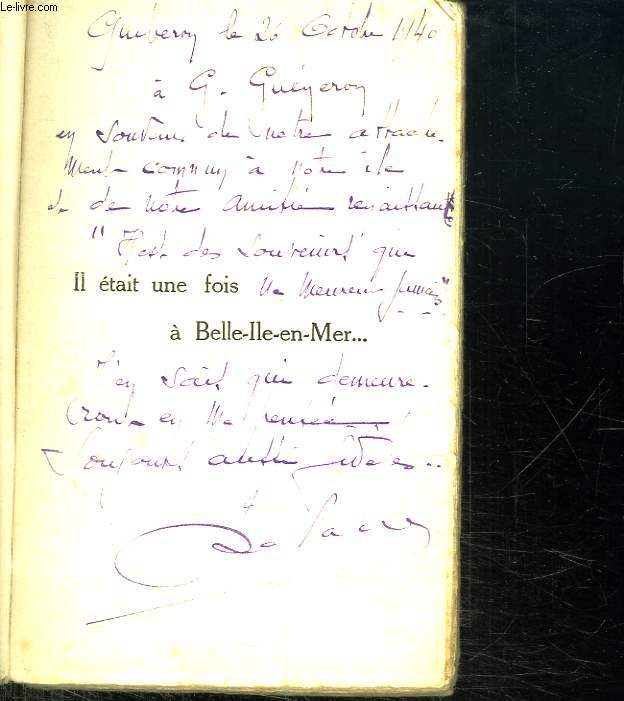 Le-livre.com
Quiberon le 26 Octobre 1940
à G. Guégeron
en souvenir de notre attache-
ment commun à notre île
et de notre amitié renaissante
" Il est des souvenirs que
Il était une fois ne meurent jamais "
à Belle-Ile-en-Mer...
J'en sais qui demeure-
ront en ma pensée
toujours aussi